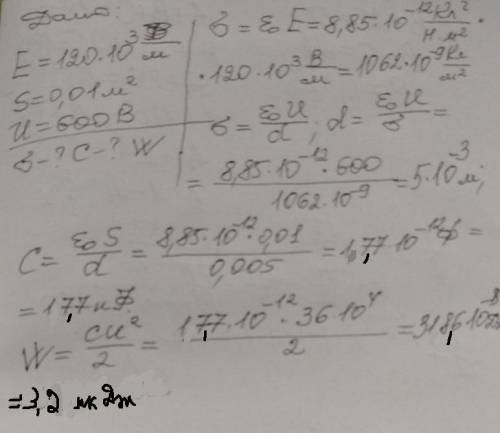 Дано:
E = 120·10³ В/м
S = 0,01 м²
U = 600 В
σ - ? C - ? W
σ = ε₀E = 8,85·10⁻¹² Кл²/Н·м² ·
· 120·10³ В/м = 1062·10⁻⁹ Кл/м²
σ = ε₀U/d ; d = ε₀U/σ =
= 8,85·10⁻¹²·600/1062·10⁻⁹ = 5·10⁻³ м;
C = ε₀S/d = 8,85·10⁻¹²·0,01/0,005 = 17,7·10⁻¹² Ф =
= 17,7 пФ
W = CU²/2 = 17,7·10⁻¹²·36·10⁴/2 = 318,6·10⁻⁸ Дж
= 3,2 мкДж